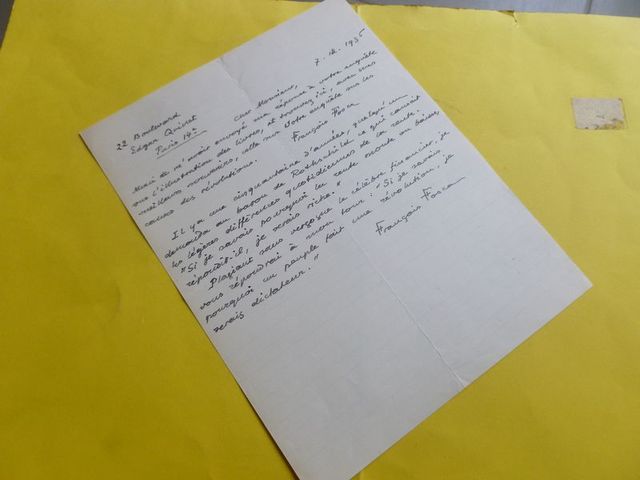 22 Boulevard
Edgar Quinet
Paris 14e
7. 12. 1935
Cher Monsieur,
Merci de m'avoir envoyé ma réponse à votre enquête
sur l'illustration des livres, et trouvez ici, avec mes
meilleurs souvenirs, celle sur votre enquête sur les
causes des révolutions.
François Fosca
Il y a une cinquantaine d'années, quelqu'un
demanda au baron de Rothschild ce qui causait
les légères différences quotidiennes de la rente:
"Si je savais pourquoi la rente monte ou baisse,
répondit-il, je serais riche."
Plagiant sans vergogne le célèbre financier, je
vous répondrai à mon tour: "Si je savais
pourquoi un peuple fait une révolution, je
serais dictateur."
François Fosca